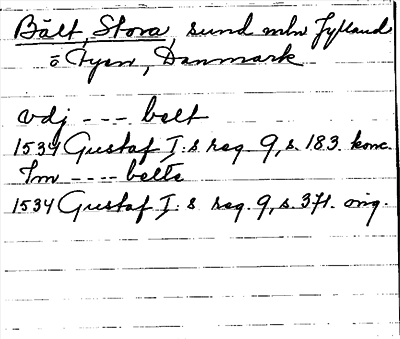 Bält, Stora, sund mln Jylland
o Fyen, Danmark
vdj - - - belt
1534 Gustaf I:s reg. 9, s. 183. konc.
Im - - - - belte
1534 Gustaf I:s reg. 9, s. 371. orig.